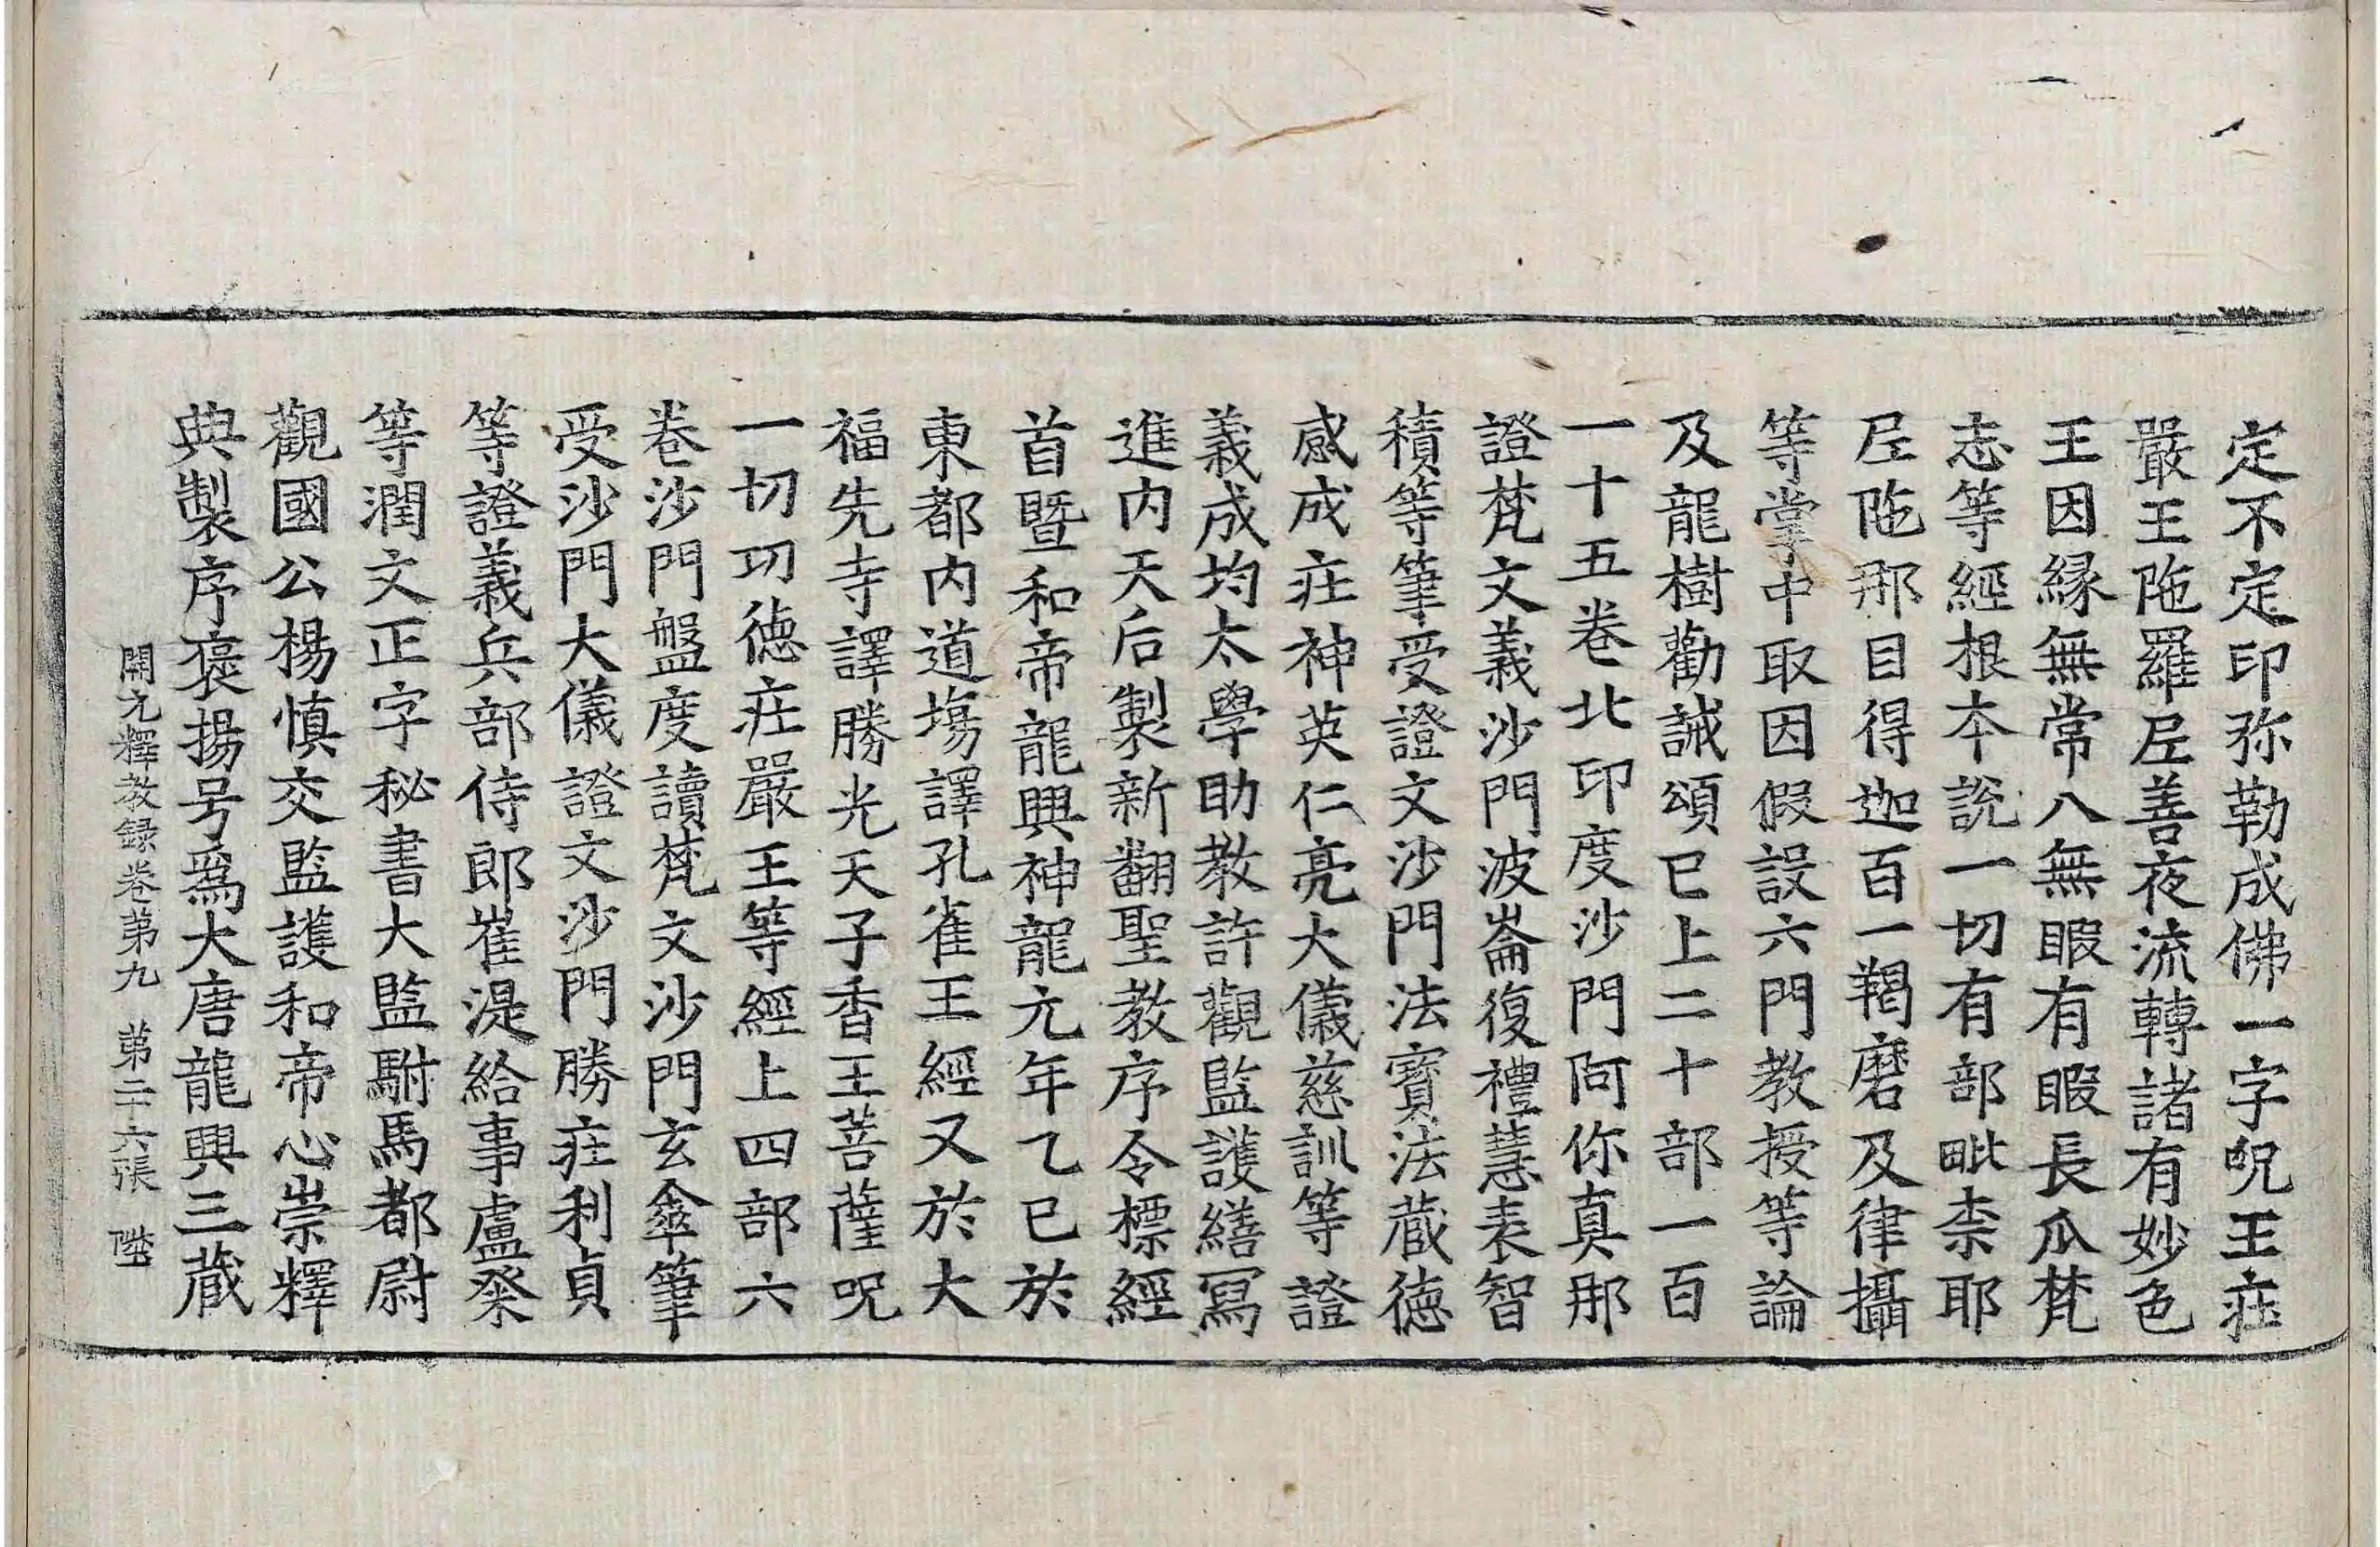 定不定印弥勒成佛一字呪王莊
嚴王陁羅𡰱善夜流轉諸有妙色
王因縁無常八無暇有暇長瓜梵
志等經根本說一切有部毗柰耶
𡰱陁那目得迦百一羯磨及律攝
等掌中取因假設六門教授等論
及龍樹勸誡頌已上二十部一百
一十五卷北印度沙門阿你真那
證梵文義沙門波崙復禮慧表智
積等筆受證文沙門法寶法藏德
感成莊神英仁亮大儀慈訓等證
義成均太學助教許觀監護繕寫
進内天后製新翻聖教序令標經
首暨和帝龍興神龍元年乙巳於
東都内道場譯孔雀王經又於大
福先寺譯勝光天子香王菩薩呪
一切功德莊嚴王等經上四部六
卷沙門盤度讀梵文沙門玄傘筆
受沙門大儀證文沙門勝莊利貞
等證義兵部侍郎崔湜給事盧粲
等潤文正字秘書大監駙馬都尉
觀國公楊慎交監護和帝心崇釋
典製序褒揚号爲大唐龍興三藏
開元釋教録卷第九 第二六張 陞